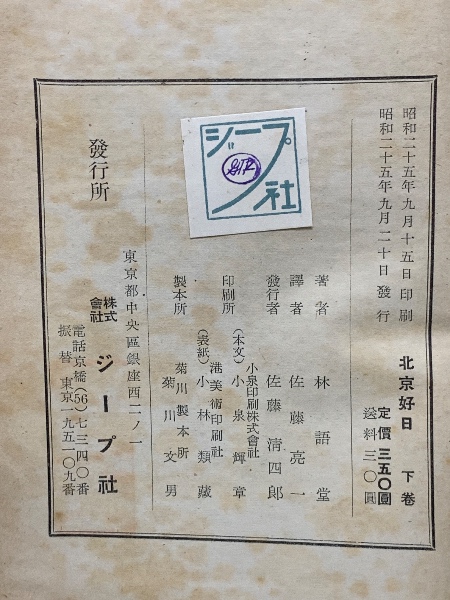 昭和二十五年九月十五日印刷
昭和二十五年九月二十日發行
北京好日 下卷
定價 三五〇圓
送料三〇圓
著者 林語堂
譯者 佐藤亮一
發行者 佐藤清四郎
印刷所
(本文)小泉印刷株式會社
小泉輝章
(表紙)港美術印刷社
小林類藏
製本所 菊川製本所
菊川文男
發行所
東京都中央區銀座西二ノ一
株式會社 ジープ社
電話京橋(56)七三四〇番
振替 東京一九五一〇九番
ジープ社